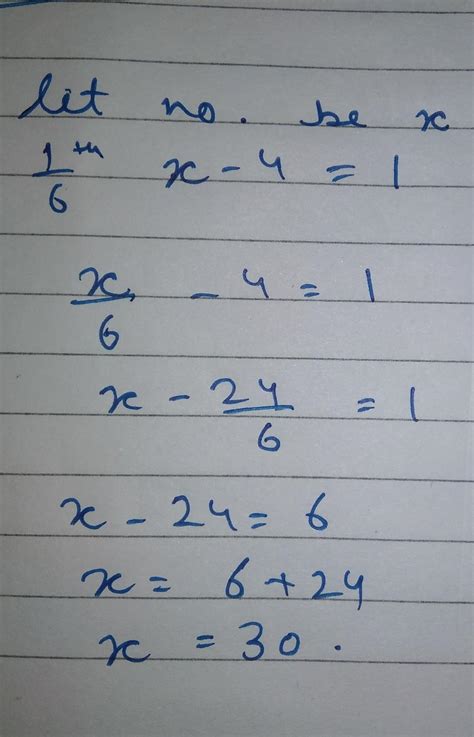 let no. be x
1/6 th x - 4 = 1
x/6 - 4 = 1
x - 24/6 = 1
x - 24 = 6
x = 6 + 24
x = 30.